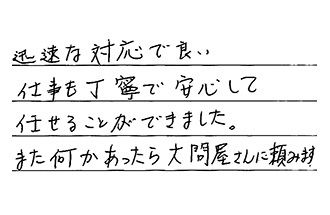 迅速な対応で良い
仕事も丁寧で安心して
任せることができました。
また何かあったら大問屋さんに頼みます